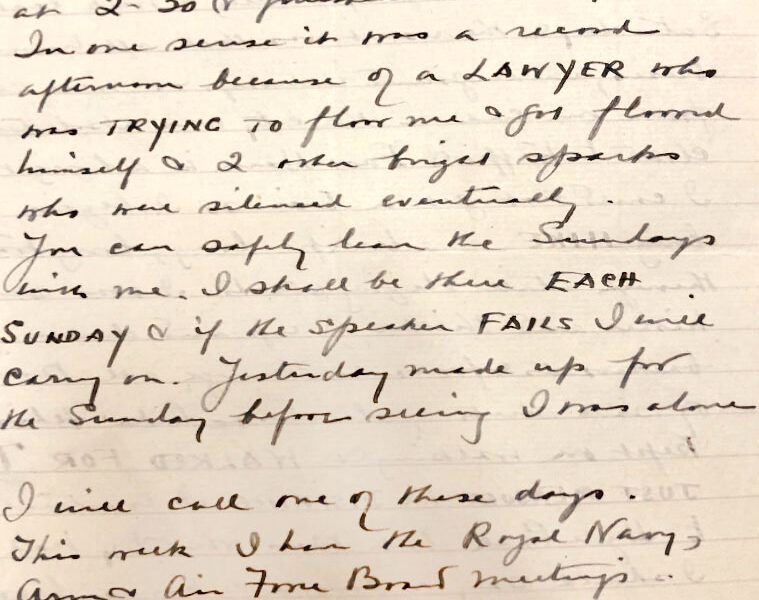 at 2-30 &
In one sense it was a record
afternoon because of a LAWYER who
was TRYING TO floor me & got floored
himself & 2 other bright sparks
who were silenced eventually.
You can safely leave the Sundays
with me. I shall be there EACH
SUNDAY & if the speaker FAILS I will
carry on. Yesterday made up for
the Sunday before seeing I was alone
I will call one of these days.
This week I have the Royal Navy,
Army & Air Force Board meetings.